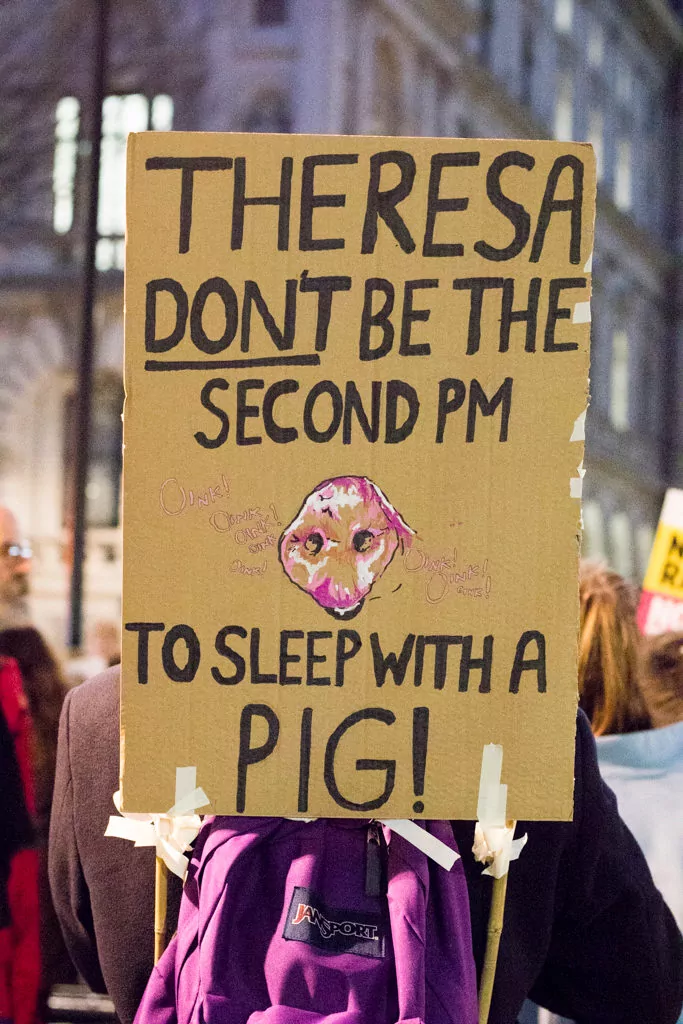 THERESA
DON'T BE THE
SECOND PM
OINK!
OINK!
OINK!
OINK!
OINK!
OINK!
OINK!
OINK!
OINK!
TO SLEEP WITH A
PIG!
JANSPORT